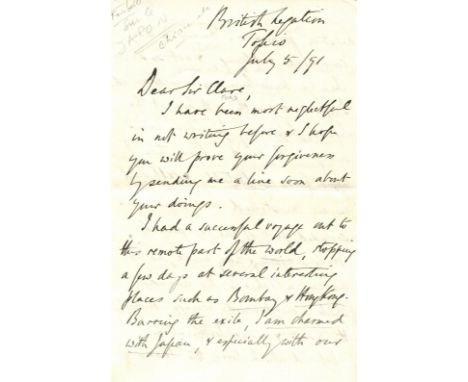 JAPON
British Legation
Tokio
July 5/91
Dear Sir Clare,
I have been most neglectful
in not writing before & I hope
you will prove your forgiveness
by sending me a line soon about
your doings.
I had a successful voyage out to
this remote part of the world, stopping
a few days at several interesting
places such as Bombay & HongKong.
Barring the exile, I am charmed
with Japan, & especially with our